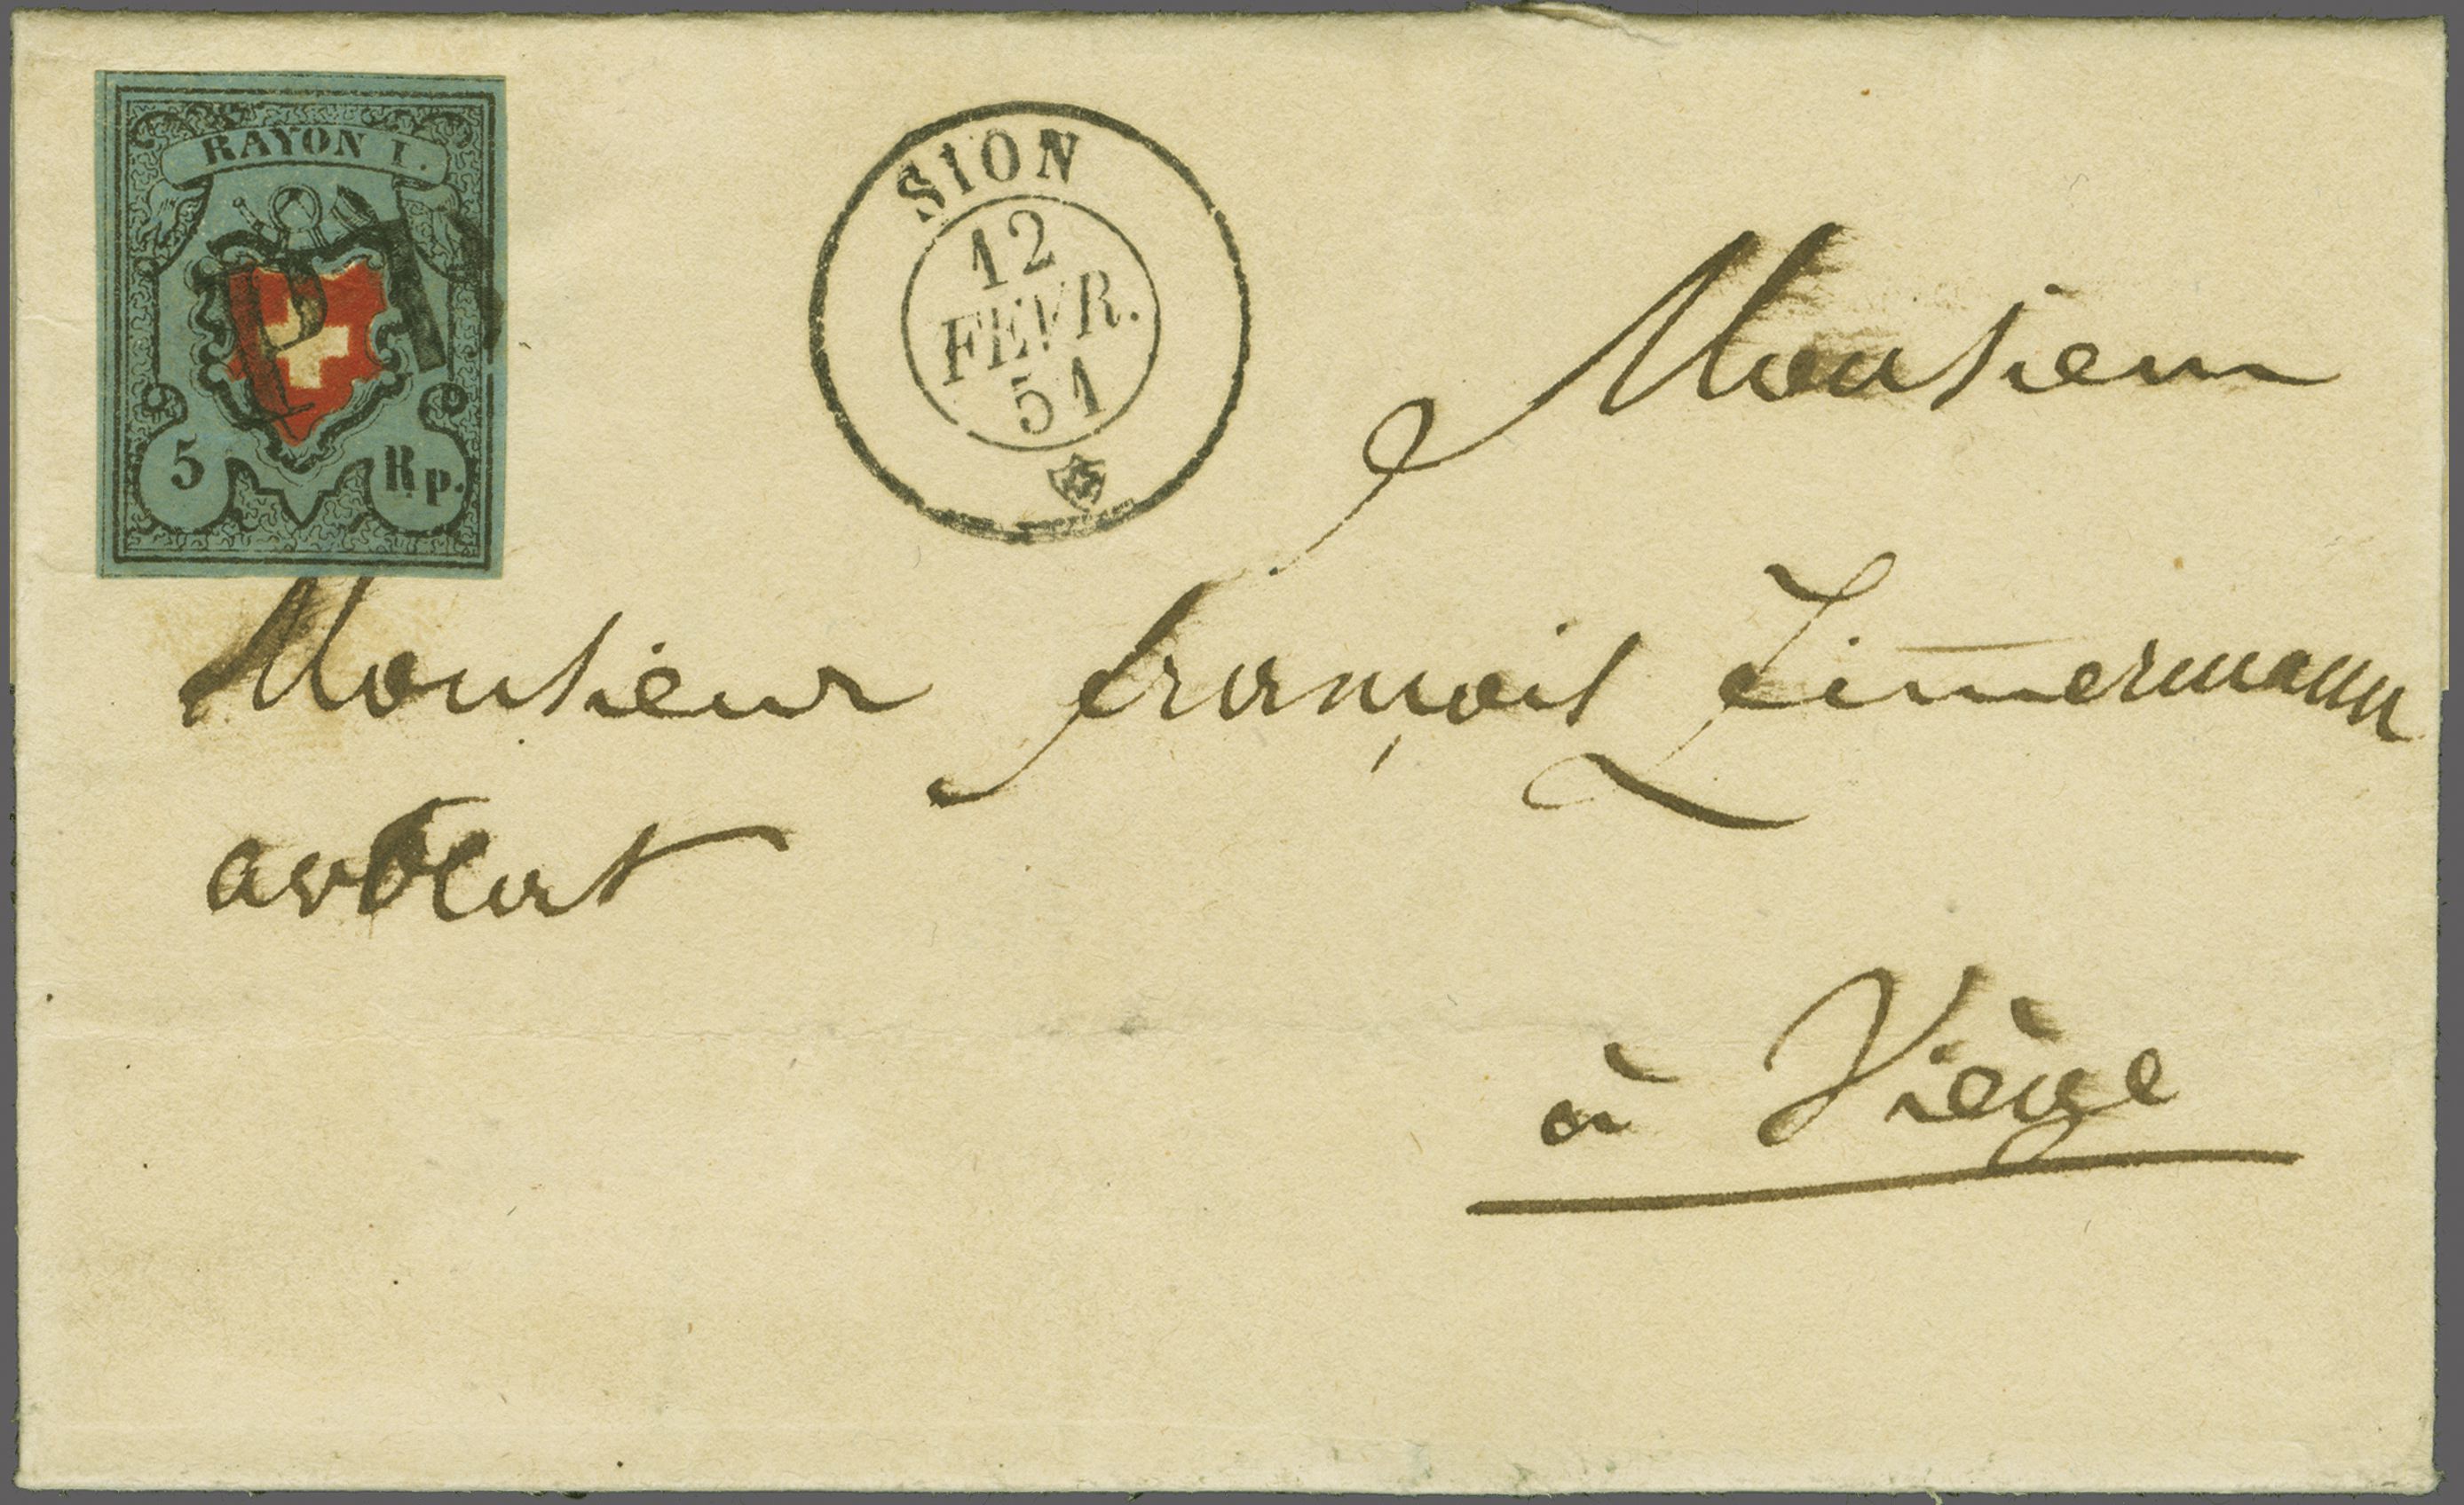 RAYON I.
PP
5 Rp.
SION
12
FEVR.
51
Monsieur
Monsieur françois Zimermann
avocat
à Viège